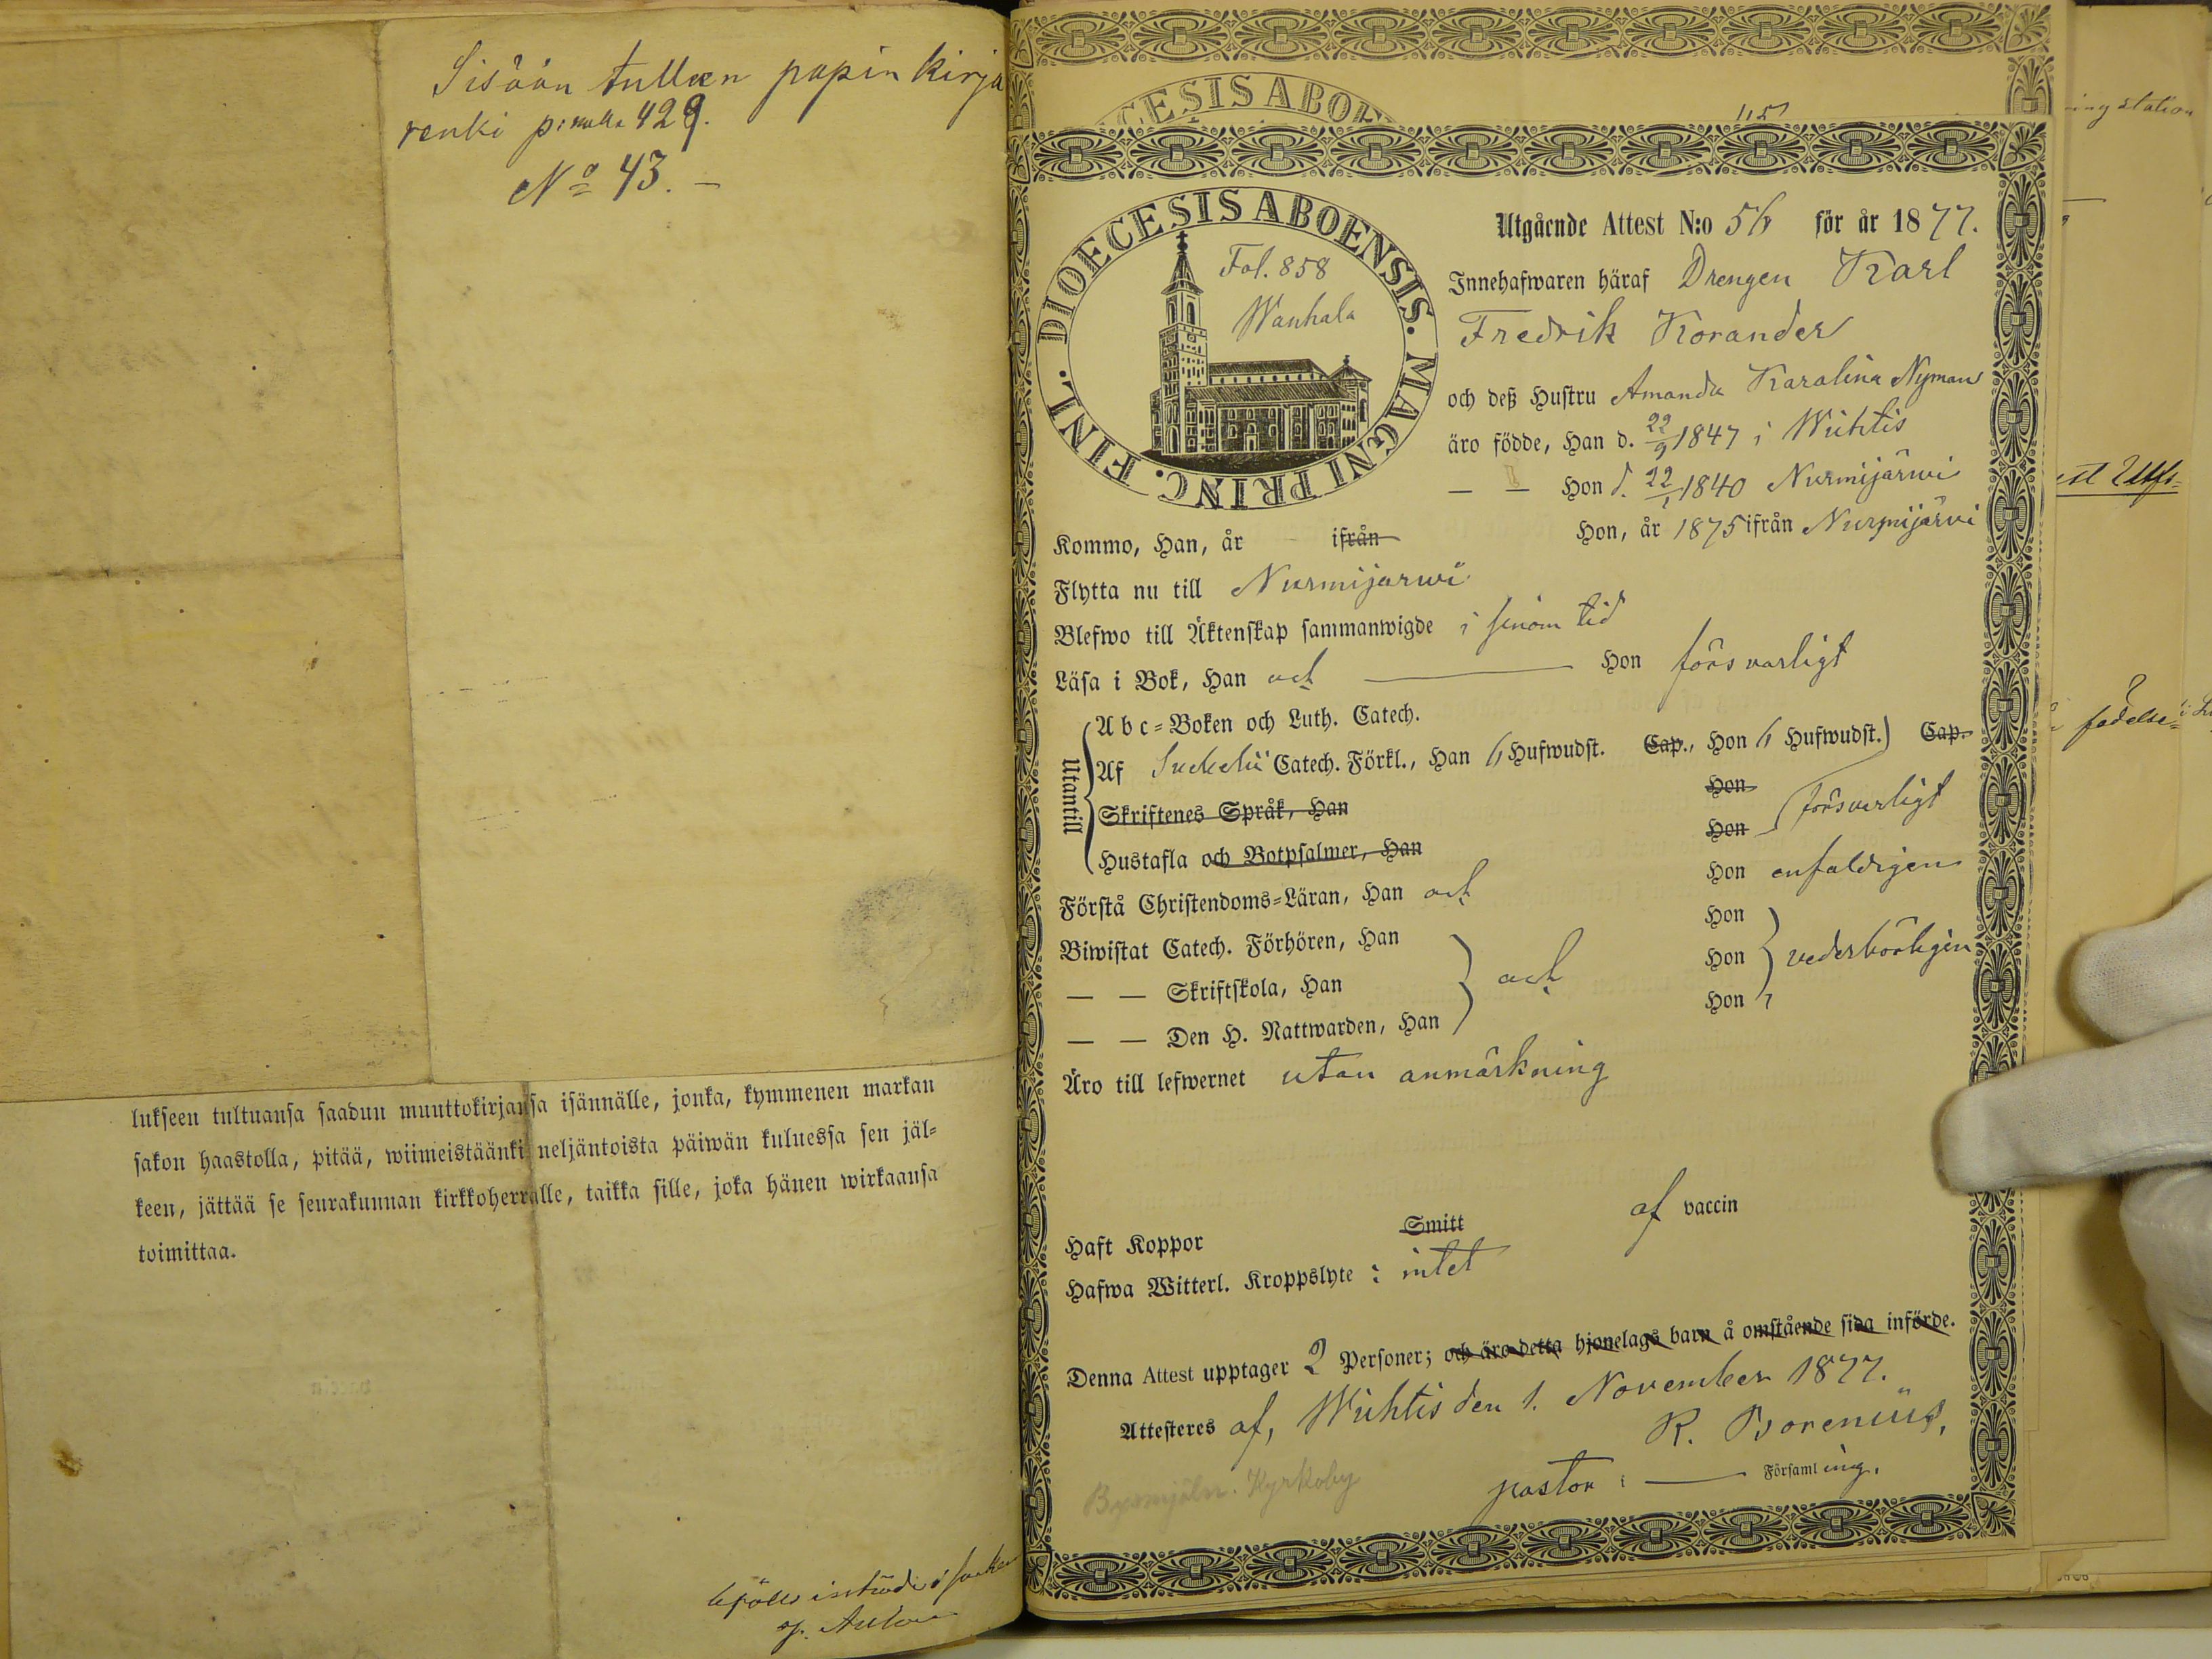 Sisään tulleen papin kirja
renki p: 429.
No 43. –
lukseen tultuansa saadun muuttokirjansa isännälle, jonka, kymmenen markan
sakon haastolla, pitää, wiimeistäänki neljäntoista päiwän kuluessa sen jäl=
keen, jättää se seurakunnan kirkkoherralle, taikka sille, joka hänen wirkaansa
toimittaa.
115
DIOECESIS ABOENSIS. MAGNI PRINC. FINL.
Fol. 858
Wanhala
Utgående Attest N:o 56 för år 1877.
Innehafwaren häraf Drengen Karl
Fredrik Korander
och deß Hustru Amanda Karolina Nyman
äro födde, Han d. 22/9 1847 i Wichtis
— — Hon d. 22/1 1840 Nurmijärwi
Kommo, Han, år – ifrån Hon, år 1875 ifrån Nurmijärvi
Flytta nu till Nurmijärwi
Blefwo till Äktenskap sammanwigde i sinom tid
Läsa i Bok, Han och — Hon försvarligt
Utantill
A b c=Boken och Luth. Catech.
Af Catech. Förkl., Han 6 Hufwudst. Cap., Hon 6 Hufwudst. Cap.
Skriftenes Språk, Han Hon
Hustafla och Botpsalmer, Han Hon försvarligt
Förstå Christendoms=Läran, Han och Hon enfaldigen
Biwistat Catech. Förhören, Han Hon
— — Skriftskola, Han och Hon vederbörligen
— — Den H. Nattwarden, Han Hon
Äro till lefwernet utan anmärkning
Haft Koppor Smitt af vaccin
Hafwa Witterl. Kroppslyte : intet
Denna Attest upptager 2 Personer; och äro detta hjonelags barn å omstående sida införde.
Attesteres af, Wichtis den 1. November 1877.
R. Borenius,
pastor i — Församling.
Kyrkoby